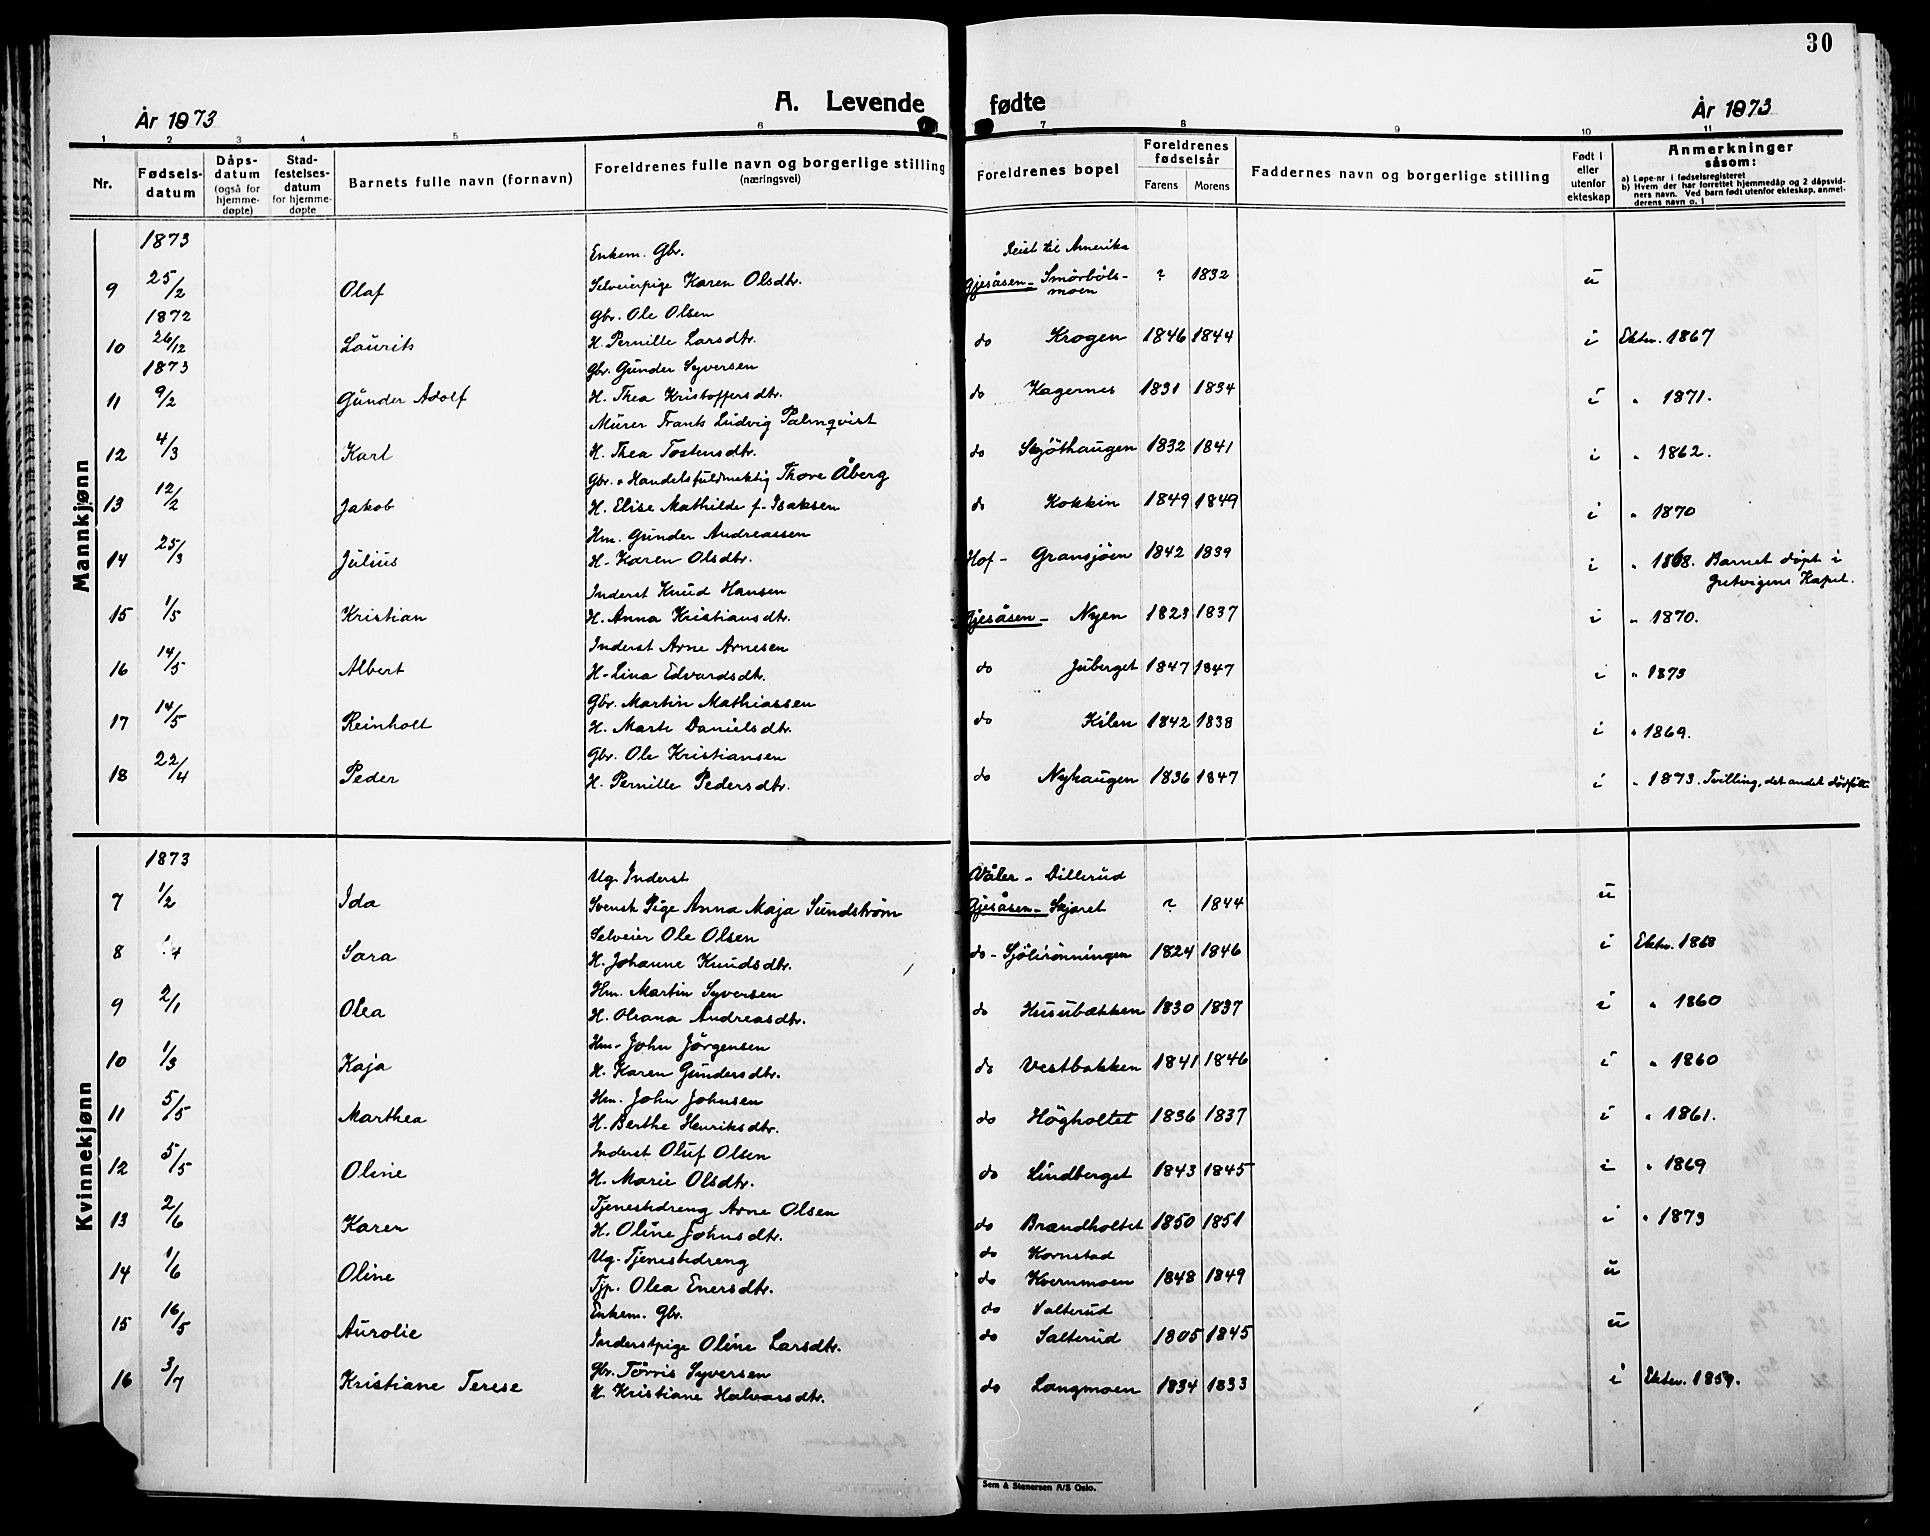 30
A. Levende fødte
År 1873
År 1873
1 2 3 4 5 6 7 8 9 10 11
Nr.
Fødsels-datum
Dåps-datum (også for hjemme-døpte)
Stad-festelses-datum for hjemme-døpte
Barnets fulle navn (fornavn)
Foreldrenes fulle navn og borgerlige stilling (næringsvei)
Foreldrenes bopel
Foreldrenes fødselsår
Farens Morens
Faddernes navn og borgerlige stilling
Født i eller utenfor ekteskap
Anmerkninger såsom:
a) Løpe-nr i fødselsregisteret
b) Hvem der har forrettet hjemmedåp og 2 dåpsvid-
ners navn. Ved barn født utenfor ekteskap, anmel-
derens navn o. l
Mannkjønn
1873 Enkem. Gbr. Reist til Amerika
9 25/2 Olaf Selveierpige Karen Olsdtr. Gjesåsen - Smörböls-moen ? 1832 u
1872 Gbr. Ole Olsen
10 26/12 Laurits H. Pernille Larsdtr. do Krogen 1846 1844 i Ektev. 1867
1873 Gbr. Gunder Syversen
11 9/2 Gunder Adolf H. Thea Kristoffersdtr. do Kagernes 1831 1834 i " 1871.
Murer Frants Ludvig Palmqvist
12 4/3 Karl H. Thea Tostensdtr. do Skjöthaugen 1832 1841 i " 1862.
Gbr. o Handelsfuldmektig Thore Åberg
13 12/2 Jakob H. Elise Mathilde f. Isaksen do Kokkin 1849 1849 i " 1870
Hm. Gunder Andreassen
14 25/3 Julius H. Karen Olsdtr. Hof - Gransjöen 1842 1839 i " 1868. Barnet döpt i
Gretvigens Kapel.
Inderst Knud Hansen
15 1/5 Kristian H. Anna Kristiansdtr. Gjesåsen - Nyen 1823 1837 i " 1870.
Inderst Arne Arnesen
16 14/5 Albert H. Lina Edvardsdtr. do Juberget 1847 1847 i " 1873
Gbr. Martin Mathiassen
17 14/5 Reinholt H. Marte Danielsdtr. do Kilen 1842 1838 i " 1869.
Gbr. Ole Kristiansen
18 22/4 Peder H. Pernille Pedersdtr. do Nyhaugen 1836 1847 i " 1873. Tvilling, det andet dödfött.
Kvinnekjønn
1873 Ug. Inderst Våler - Dillerud
7 1/2 Ida Svensk Pige Anna Maja Sundström Gjesåsen - Skjaret ? 1844 u
Selveier Ole Olsen
8 Sara H. Johanne Knudsdtr. do - Sjölirönningen 1824 1846 i Ektev. 1868
Hm. Martin Syversen
9 2/1 Olea H. Oleana Andreasdtr. do Husubækken 1830 1837 i " 1860
Hm. John Jörgensen
10 1/3 Kaja H. Karen Gundersdtr. do Vestbakken 1841 1846 i " 1860
Hm. John Johnsen
11 5/5 Marthea H. Berthe Henriksdtr. do Högholtet 1836 1837 i " 1861.
Inderst Oluf Olsen
12 5/5 Oline H. Marie Olsdtr. do Lindberget 1843 1845 i " 1869
Tjenestedreng Arne Olsen
13 2/6 Karen H. Oline Johnsdtr. do Brandholtet 1850 1851 i " 1873
Ug. Tjenestedreng do Kornstad
14 1/6 Oline Tjp. Olea Enersdtr. do Kvernmoen 1848 1849 u
Enkem. Gbr. do Valterud
15 16/5 Aurolie Inderstpige Oline Larsdtr. do Salterud 1805 1845 u
Gbr. Törris Syversen
16 3/7 Kristiane Terese H. Kristiane Halvorsdtr. do Langmoen 1834 1833 i Ektev. 1859.
Sem & Stenersen A/S Oslo.